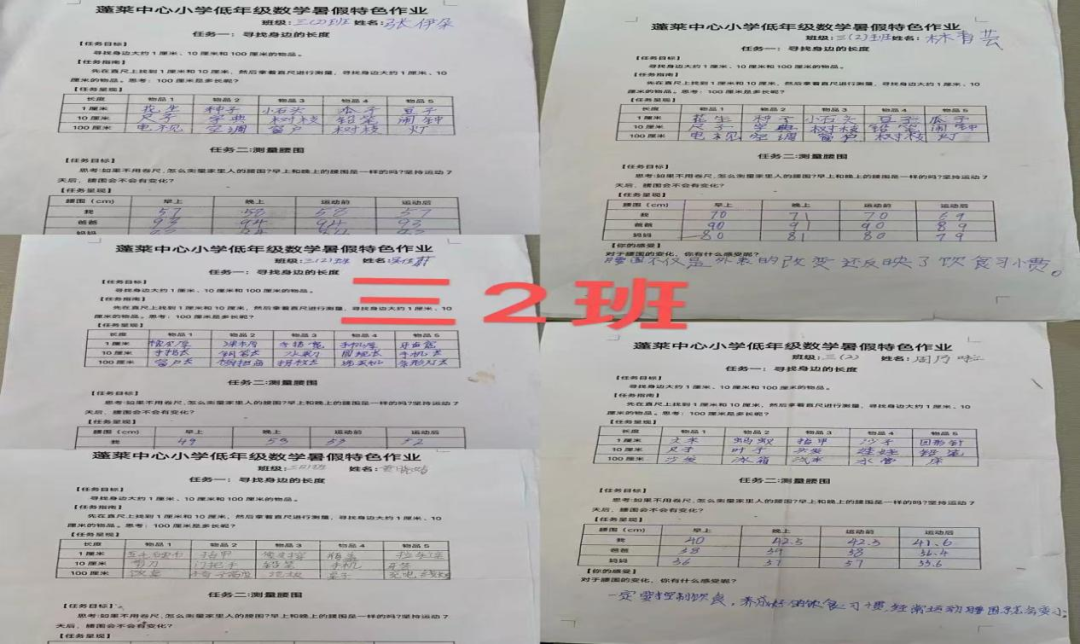 蓬莱中心小学低年级数学暑假特色作业
班级:三(2)班 姓名:张伊朵
任务一:寻找身边的长度
【任务目标】
寻找身边大约1厘米、10厘米和100厘米的物品。
【任务指南】
先在直尺上找到1厘米和10厘米,然后拿着直尺进行测量,寻找身边大约1厘米、10
厘米的物品。思考:100厘米是多长呢?
【任务呈现】
长度 物品1 物品2 物品3 物品4 物品5
1厘米 花生 种子 小石头 瓜子 豆子
10厘米 尺子 字典 树枝 铅笔 闹钟
100厘米 电视 空调 窗户 树枝 灯
任务二:测量腰围
【任务目标】
思考:如果不用卷尺,怎么测量家里人的腰围?早上和晚上的腰围是一样的吗?坚持运动7
天后,腰围会不会有变化?
【任务呈现】
腰围(cm) 早上 晚上 运动前 运动后
我 57 58 58 57
爸爸 93 94 94 93
蓬莱中心小学低年级数学暑假特色作业
班级:三(2)班 姓名:林青芸
任务一:寻找身边的长度
【任务目标】
寻找身边大约1厘米、10厘米和100厘米的物品。
【任务指南】
先在直尺上找到1厘米和10厘米,然后拿着直尺进行测量,寻找身边大约1厘米、10
厘米的物品。思考:100厘米是多长呢?
【任务呈现】
长度 物品1 物品2 物品3 物品4 物品5
1厘米 花生 种子 小石头 豆子 瓜子
10厘米 尺子 字典 树枝 铅笔 闹钟
100厘米 电视 空调 窗户 树枝 灯
任务二:测量腰围
【任务目标】
思考:如果不用卷尺,怎么测量家里人的腰围?早上和晚上的腰围是一样的吗?坚持运动7
天后,腰围会不会有变化?
【任务呈现】
腰围(cm) 早上 晚上 运动前 运动后
我 70 71 70 69
爸爸 90 91 90 89
妈妈 80 81 80 79
【你的感受】
对于腰围的变化,你有什么感受呢?
腰围不仅是外表的改变还反映了饮食习惯。
三2班
蓬莱中心小学低年级数学暑假特色作业
班级:三(2)班 姓名:
任务一:寻找身边的长度
【任务目标】
寻找身边大约1厘米、10厘米和100厘米的物品。
【任务指南】
先在直尺上找到1厘米和10厘米,然后拿着直尺进行测量,寻找身边大约1厘米、10
厘米的物品。思考:100厘米是多长呢?
【任务呈现】
长度 物品1 物品2 物品3 物品4 物品5
1厘米
10厘米
100厘米
任务二:测量腰围
【任务目标】
思考:如果不用卷尺,怎么测量家里人的腰围?早上和晚上的腰围是一样的吗?坚持运动7
天后,腰围会不会有变化?
【任务呈现】
腰围(cm) 早上 晚上 运动前 运动后
我 49 53 53 52
蓬莱中心小学低年级数学暑假特色作业
班级: 姓名:
任务一:寻找身边的长度
【任务目标】
寻找身边大约1厘米、10厘米和100厘米的物品。
【任务指南】
先在直尺上找到1厘米和10厘米,然后拿着直尺进行测量,寻找身边大约1厘米、10
厘米的物品。思考:100厘米是多长呢?
【任务呈现】
长度 物品1 物品2 物品3 物品4 物品5
1厘米 指甲
10厘米 剪刀 门把手 铅笔 手机
100厘米 桌子
任务二:测量腰围
【任务目标】
思考:如果不用卷尺,怎么测量家里人的腰围?早上和晚上的腰围是一样的吗?坚持运动7
天后,腰围会不会有变化?
【任务呈现】
蓬莱中心小学低年级数学暑假特色作业
班级:三(2) 姓名:周
任务一:寻找身边的长度
【任务目标】
寻找身边大约1厘米、10厘米和100厘米的物品。
【任务指南】
先在直尺上找到1厘米和10厘米,然后拿着直尺进行测量,寻找身边大约1厘米、10
厘米的物品。思考:100厘米是多长呢?
【任务呈现】
长度 物品1 物品2 物品3 物品4 物品5
1厘米 大米 蚂蚁 指甲 沙子 回形针
10厘米 尺子 叶子 头发 娃娃 铅笔
100厘米 沙发 冰箱 水管 床
任务二:测量腰围
【任务目标】
思考:如果不用卷尺,怎么测量家里人的腰围?早上和晚上的腰围是一样的吗?坚持运动7
天后,腰围会不会有变化?
【任务呈现】
腰围(cm) 早上 晚上 运动前 运动后
我 40 42.5 42.5 41.6
爸爸 38 39 38 36.4
妈妈 36 37 37 35.6
【你的感受】
对于腰围的变化,你有什么感受呢?
一定要控制饮食,养成好的饮食习惯,经常运动腰围